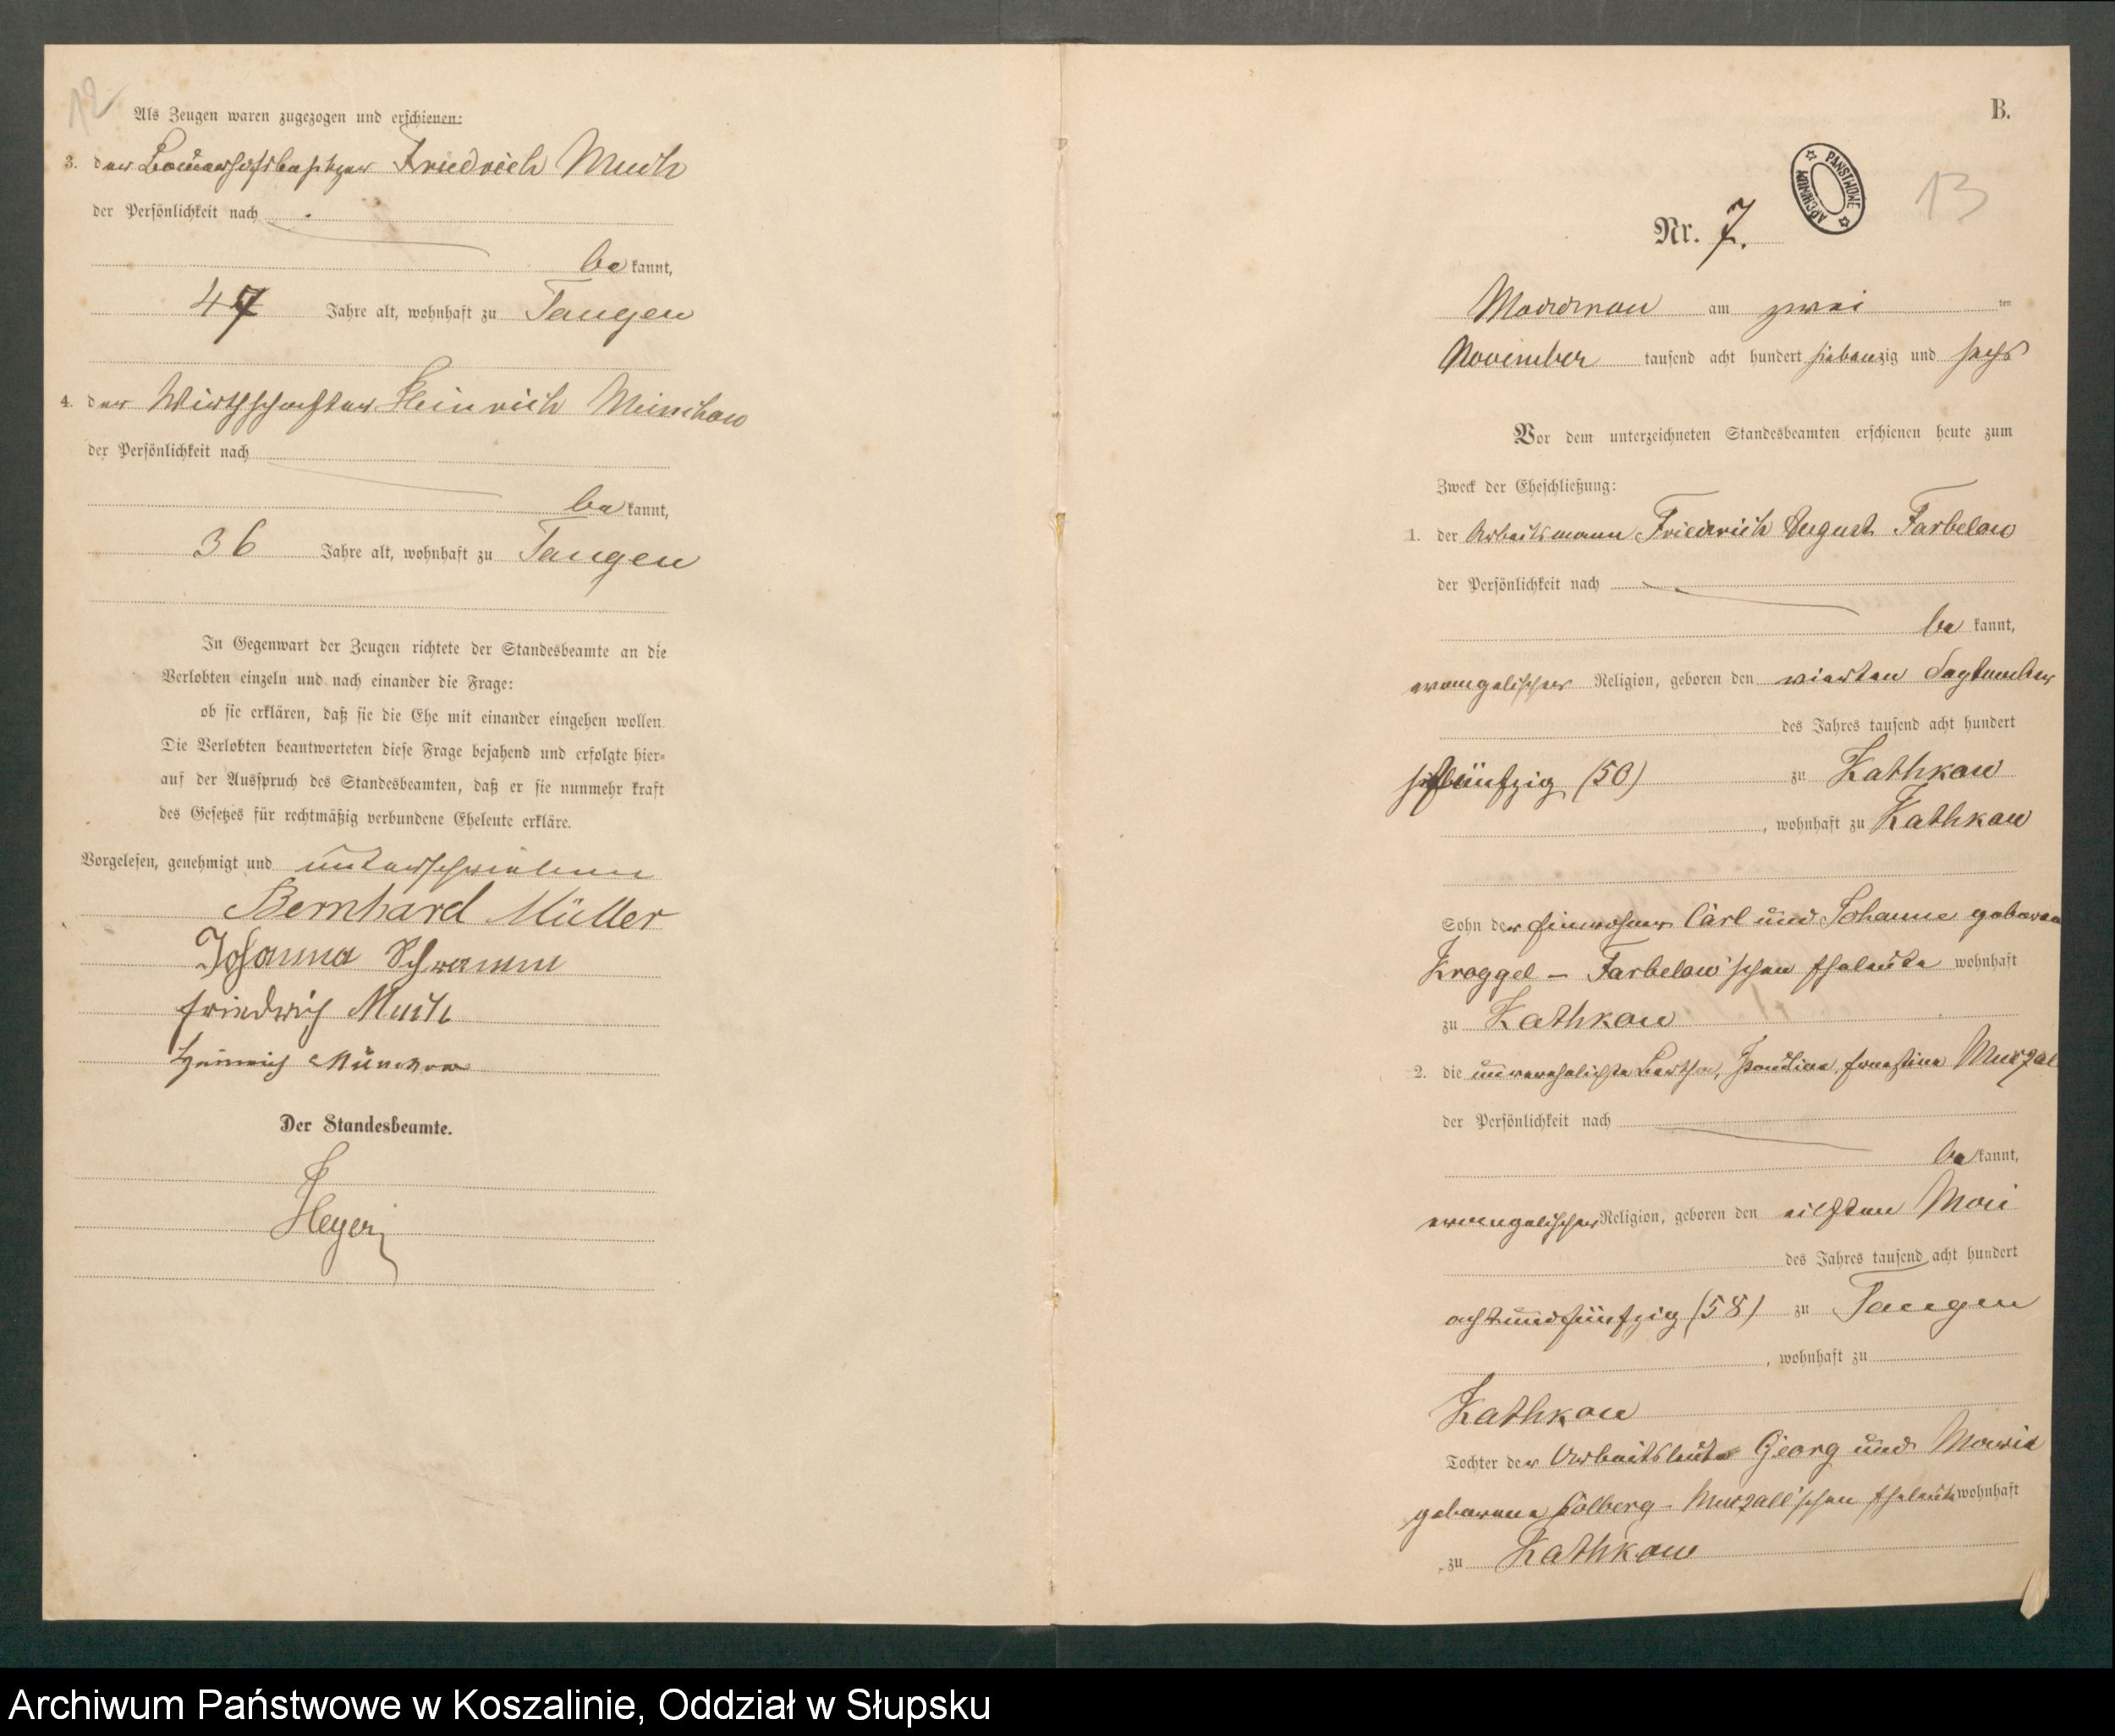 12
Als Zeugen waren zugezogen und erschienen:
3. der Friedrich Much
der Persönlichkeit nach
be kannt,
47 Jahre alt, wohnhaft zu Tangen
4. der Wirthschafter Heinrich Münchow
der Persönlichkeit nach
be kannt,
36 Jahre alt, wohnhaft zu Tangen
In Gegenwart der Zeugen richtete der Standesbeamte an die
Verlobten einzeln und nach einander die Frage:
ob sie erklären, daß sie die Ehe mit einander eingehen wollen.
Die Verlobten beantworteten diese Frage bejahend und erfolgte hier=
auf der Ausspruch des Standesbeamten, daß er sie nunmehr kraft
des Gesetzes für rechtmäßig verbundene Eheleute erkläre.
Vorgelesen, genehmigt und unterschrieben
Bernhard Müller
Johanna Schramm
Friedrich Much
Heinrich Münchow
Der Standesbeamte.
Heyer
B.
ARCHIWUM PAŃSTWOWE
13
Nr. 7.
Moddrow am zwei ten
November tausend acht hundert siebenzig und sechs
Vor dem unterzeichneten Standesbeamten erschienen heute zum
Zweck der Eheschließung:
1. der Arbeitsmann Friedrich August Farbelow
der Persönlichkeit nach
be kannt,
evangelischer Religion, geboren den vierten September
des Jahres tausend acht hundert
fünfzig (50) zu Kathkow
, wohnhaft zu Kathkow
Sohn der Einwohner Carl und Johanne geborene
Kroggel – Farbelow'schen Eheleute wohnhaft
zu Kathkow
2. die unverehelichte Bertha, Pauline, Ernestine Murzal
der Persönlichkeit nach
be kannt,
evangelischer Religion, geboren den eilften Mai
des Jahres tausend acht hundert
achtundfünfzig (58) zu Tangen
, wohnhaft zu
Kathkow
Tochter der Arbeitsleute Georg und Marie
geborene Golberg - Murzall'schen Eheleute wohnhaft
zu Kathkow
Archiwum Państwowe w Koszalinie, Oddział w Słupsku